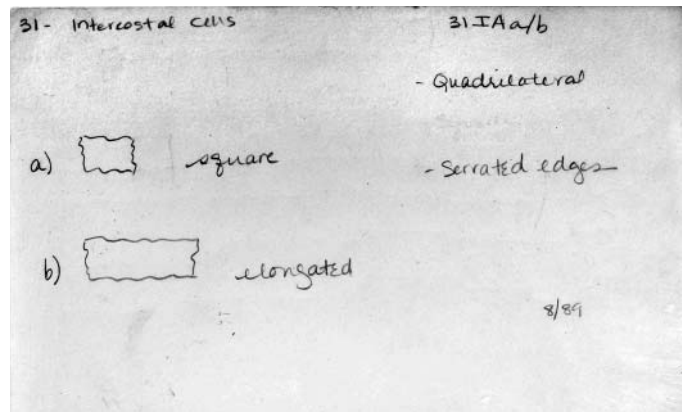 31- Intercostal Cells
31IAa/b
- Quadrilateral
a) square
- Serrated edges
b) elongated
8/89